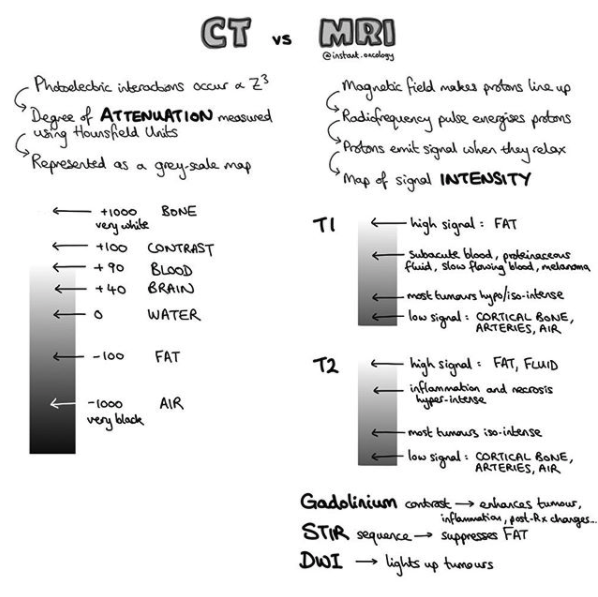 CT vs MRI
@instant.oncology
Photoelectric interactions occur ∝ Z³
Degree of ATTENUATION measured
using Hounsfield Units
Represented as a grey-scale map
+1000 BONE
very white
+100 CONTRAST
+90 BLOOD
+40 BRAIN
0 WATER
-100 FAT
-1000 AIR
very black
Magnetic field makes protons line up
Radiofrequency pulse energises protons
Protons emit signal when they relax
Map of signal INTENSITY
T1
high signal: FAT
subacute blood, proteinaceous
fluid, slow flowing blood, melanoma
most tumours hypo/iso-intense
low signal: CORTICAL BONE,
ARTERIES, AIR
T2
high signal: FAT, FLUID
inflammation and necrosis
hyper-intense
most tumours iso-intense
low signal: CORTICAL BONE,
ARTERIES, AIR
Gadolinium contrast → enhances tumour,
inflammation, post-Rx changes...
STIR sequence → suppresses FAT
DWI → lights up tumours